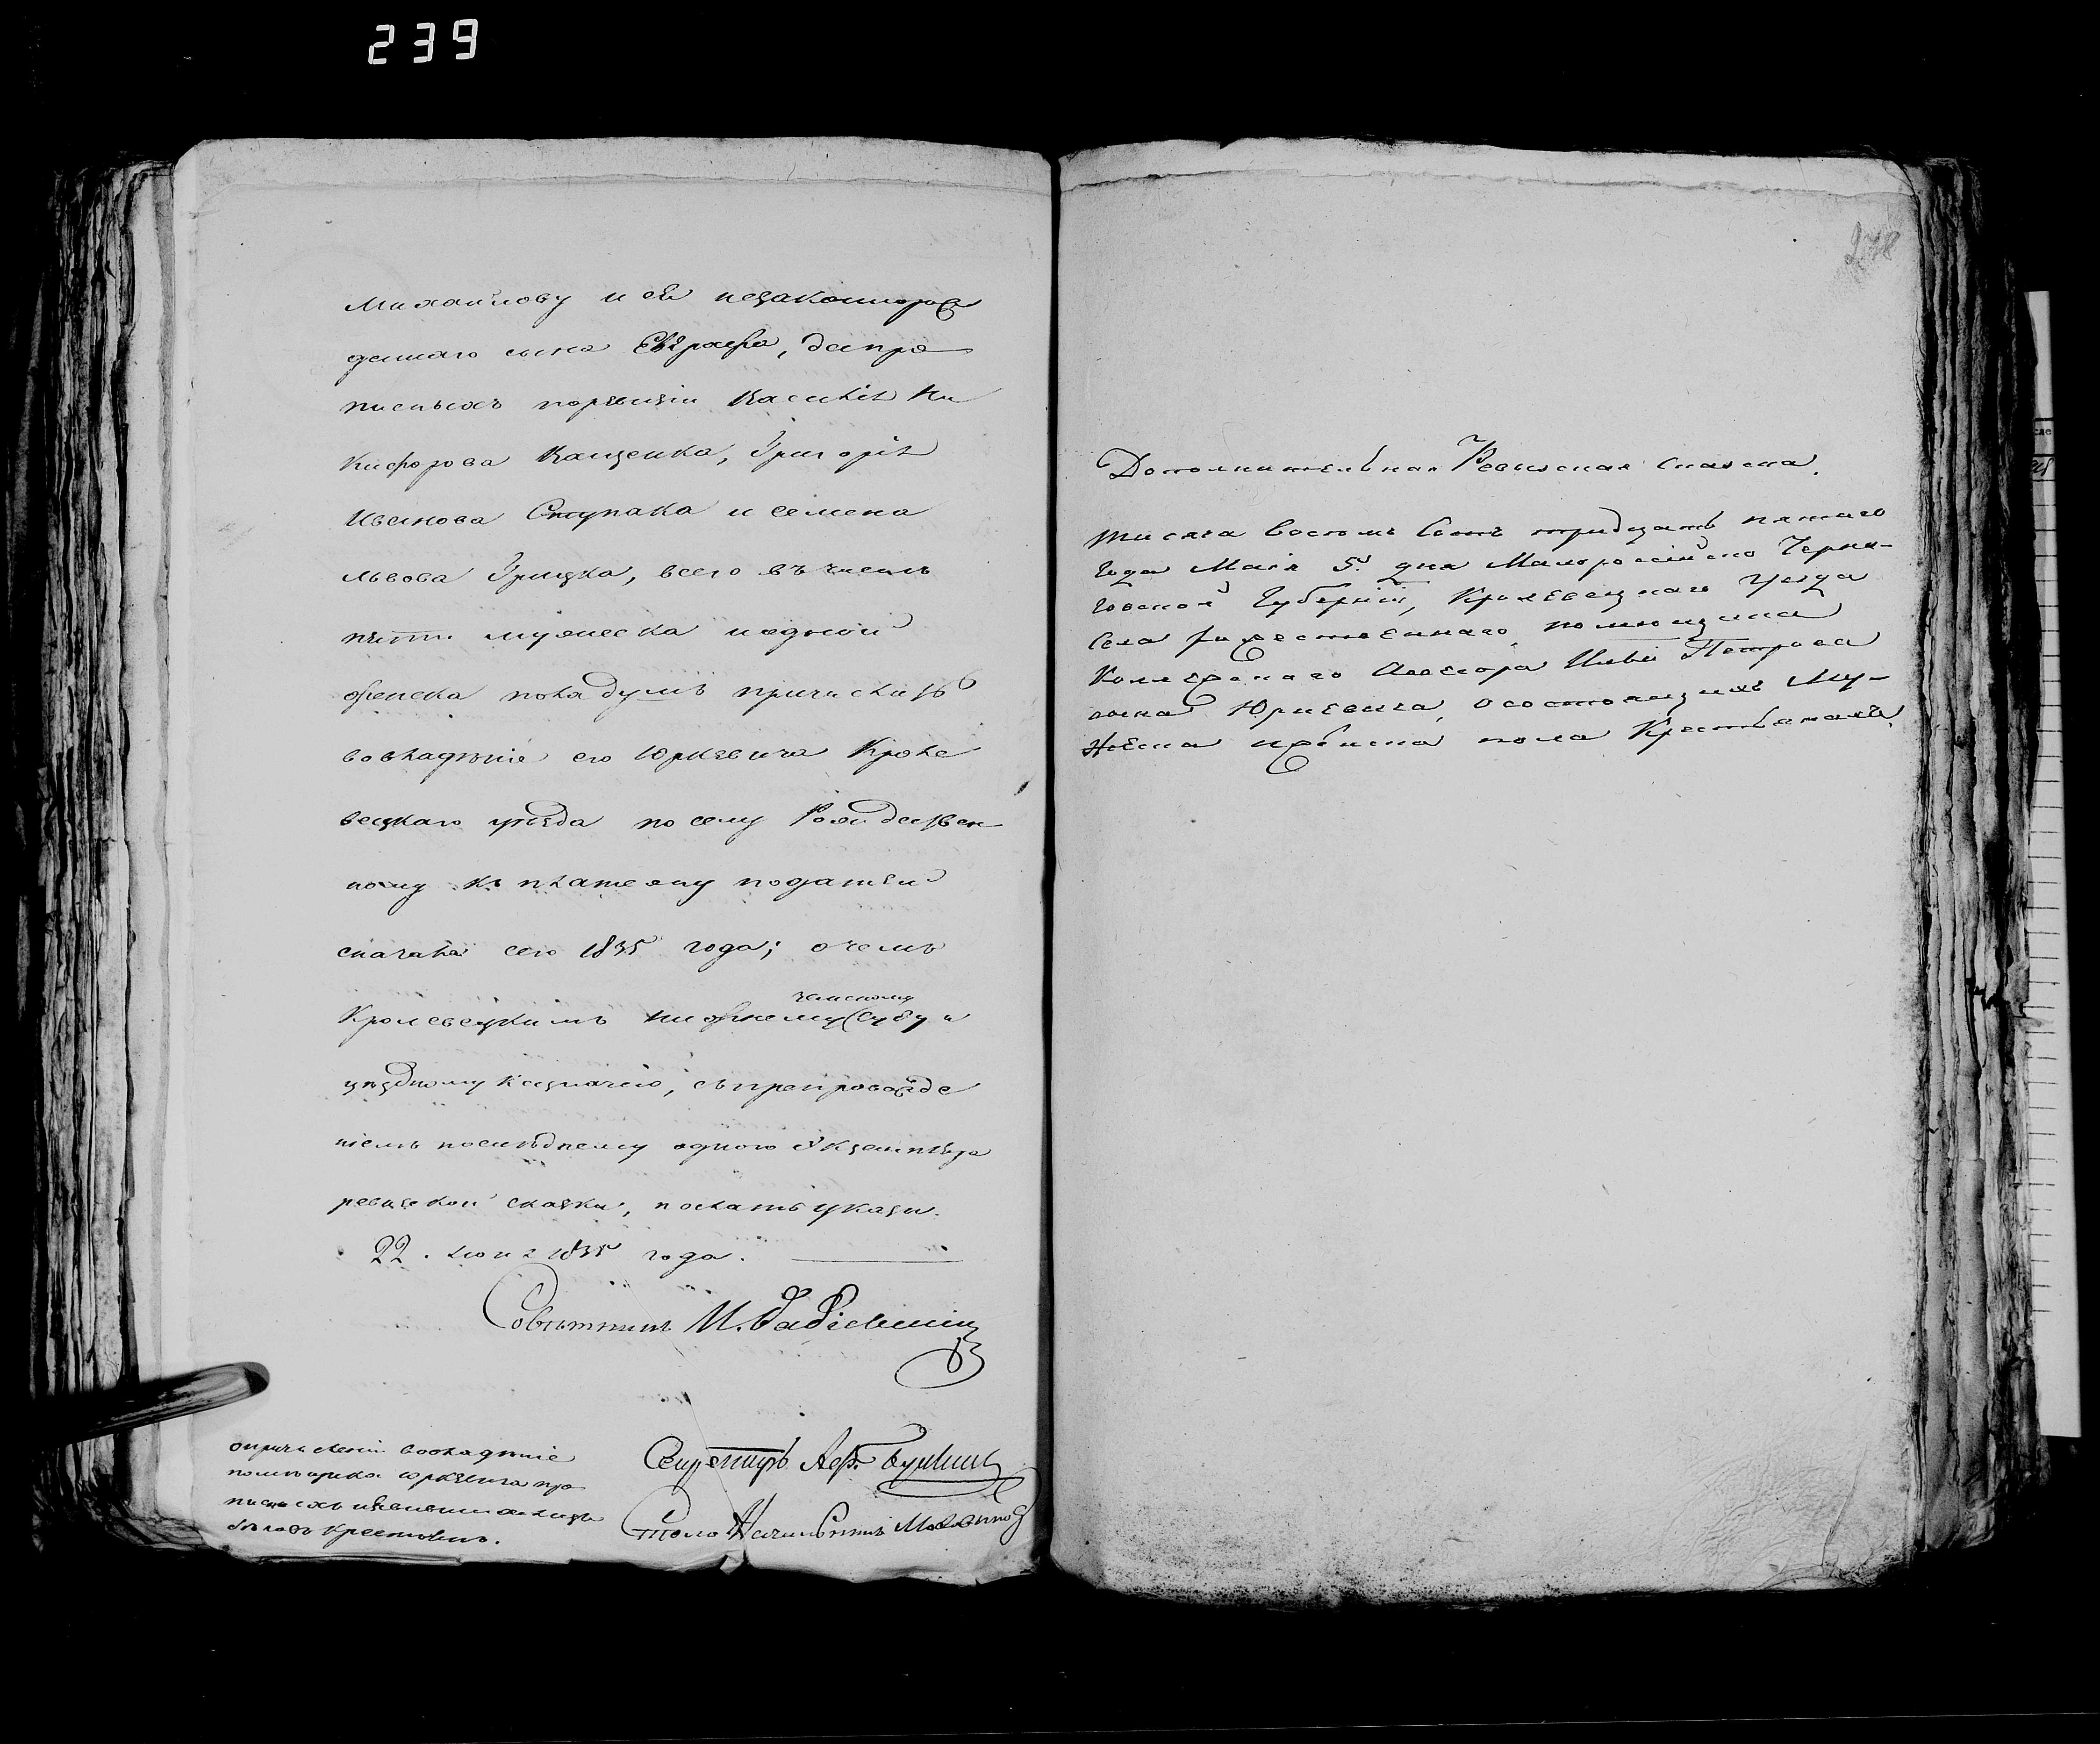 239
Михайлову и ей незаконнорож
деннаго сына Евграфа, да про
писныхъ по ревизіи Василія Ни
кифорова Кащенка, Григорія
Иванова Ступака и Семена
Львова Грицка, всего въ числѣ
пяти мужеска и одной
женска пола душъ причислить
во владѣніе его Юркевича Кроле
вецкаго уѣзда по селу Рождествен
ному къ платежу податей
сначала сего 1835 года; о чемъ
Кролевецкимъ Нижнему земскому Суду и
уѣздному Казначею, съ препровожде
ніемъ послѣднему одного экземпляра
ревизской сказки, послать указы.
22. Июня 1835 года.
Совѣтникъ И.
Секретарь Аф.
Столо Начальникъ
о причисленіи во владѣніе
помѣщика Юркевича про
писныхъ и
бѣговъ крестьянъ.
Дополнительная Ревизская сказка.
Тысяча Восемь Сотъ тридцать пятаго
Года Маія 5. дня Малороссійско Черни-
говской Губерніи, Кролевецкаго Уезда
Села Рождественнаго помещика
Колежскаго Ассесора Ильи Петрова
сына Юркевича, о состоящихъ Му-
жеска и женска пола Крестьянахъ.